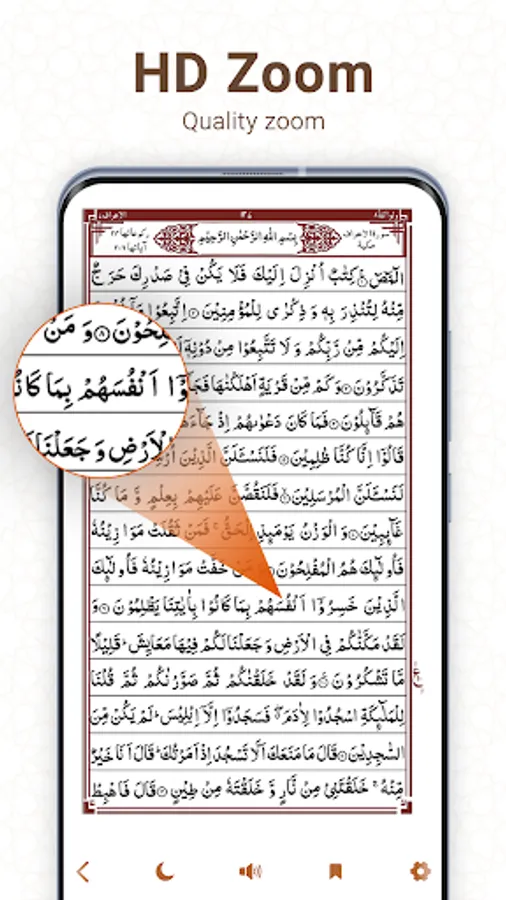 HD Zoom
Quality zoom
الاعراف ٧
١٣٨
ولو اننا ٨
سورة الاعراف مكية
بِسْمِ اللّٰهِ الرَّحْمٰنِ الرَّحِيْمِ
الٓمّٓصٓ ۚ كِتٰبٌ اُنْزِلَ اِلَيْكَ فَلَا يَكُنْ فِيْ صَدْرِكَ حَرَجٌ
مِّنْهُ لِتُنْذِرَ بِهٖ وَ ذِكْرٰى لِلْمُؤْمِنِيْنَ ۝ اِتَّبِعُوْا مَاۤ اُنْزِلَ
اِلَيْكُمْ مِّنْ رَّبِّكُمْ وَ لَا تَتَّبِعُوْا مِنْ دُوْنِهٖۤ
تَذَكَّرُوْنَ ۝ وَ كَمْ مِّنْ قَرْيَةٍ اَهْلَكْنٰهَا فَجَآءَ
هُمْ قَآئِلُوْنَ ۝ فَمَا كَانَ دَعْوٰىهُمْ اِذْ جَآءَهُمْ
قَالُوْۤا اِنَّا كُنَّا ظٰلِمِيْنَ ۝ فَلَنَسْـَٔلَنَّ الَّذِيْنَ اُرْسِلَ
لَنَسْـَٔلَنَّ الْمُرْسَلِيْنَ ۝ فَلَنَقُصَّنَّ عَلَيْهِمْ بِعِلْمٍ وَّ مَا كُنَّا
غَآئِبِيْنَ ۝ وَ الْوَزْنُ يَوْمَئِذِ الْحَقُّ ۚ فَمَنْ ثَقُلَتْ مَوَازِيْنُهٗ
فَاُولٰٓئِكَ هُمُ الْمُفْلِحُوْنَ ۝ وَ مَنْ خَفَّتْ مَوَازِيْنُهٗ فَاُولٰٓئِكَ
الَّذِيْنَ خَسِرُوْۤا اَنْفُسَهُمْ بِمَا كَانُوْا بِاٰيٰتِنَا يَظْلِمُوْنَ ۝ وَ
لَقَدْ مَكَّنّٰكُمْ فِي الْاَرْضِ وَ جَعَلْنَا لَكُمْ فِيْهَا مَعَايِشَ ؕ قَلِيْلًا
مَّا تَشْكُرُوْنَ ۝ وَ لَقَدْ خَلَقْنٰكُمْ ثُمَّ صَوَّرْنٰكُمْ ثُمَّ قُلْنَا
لِلْمَلٰٓئِكَةِ اسْجُدُوْا لِاٰدَمَ ۖ فَسَجَدُوْۤا اِلَّاۤ اِبْلِيْسَ ؕ لَمْ يَكُنْ مِّنَ
السّٰجِدِيْنَ ۝ قَالَ مَا مَنَعَكَ اَلَّا تَسْجُدَ اِذْ اَمَرْتُكَ ؕ قَالَ اَنَا خَيْرٌ
مِّنْهُ ۚ خَلَقْتَنِيْ مِنْ نَّارٍ وَّ خَلَقْتَهٗ مِنْ طِيْنٍ ۝ قَالَ فَاهْبِطْ
لِحُوْنَ ۝ وَ مَنْ
وْۤا اَنْفُسَهُمْ بِمَا كَانُ
الْاَرْضِ وَ جَعَلْنَا